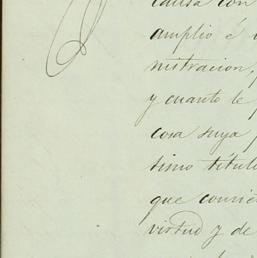 causa con
amplio é
nistracion,
y cuanto le
cosa suya
simo titulo
que convie
virtud y de